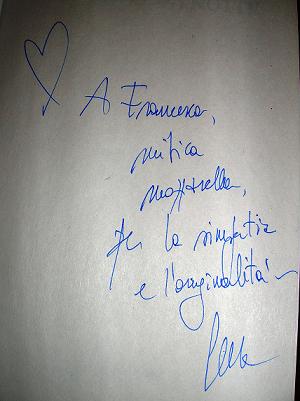 A Francesca,
mitica
mozzarella,
per la simpatia
e l'originalità